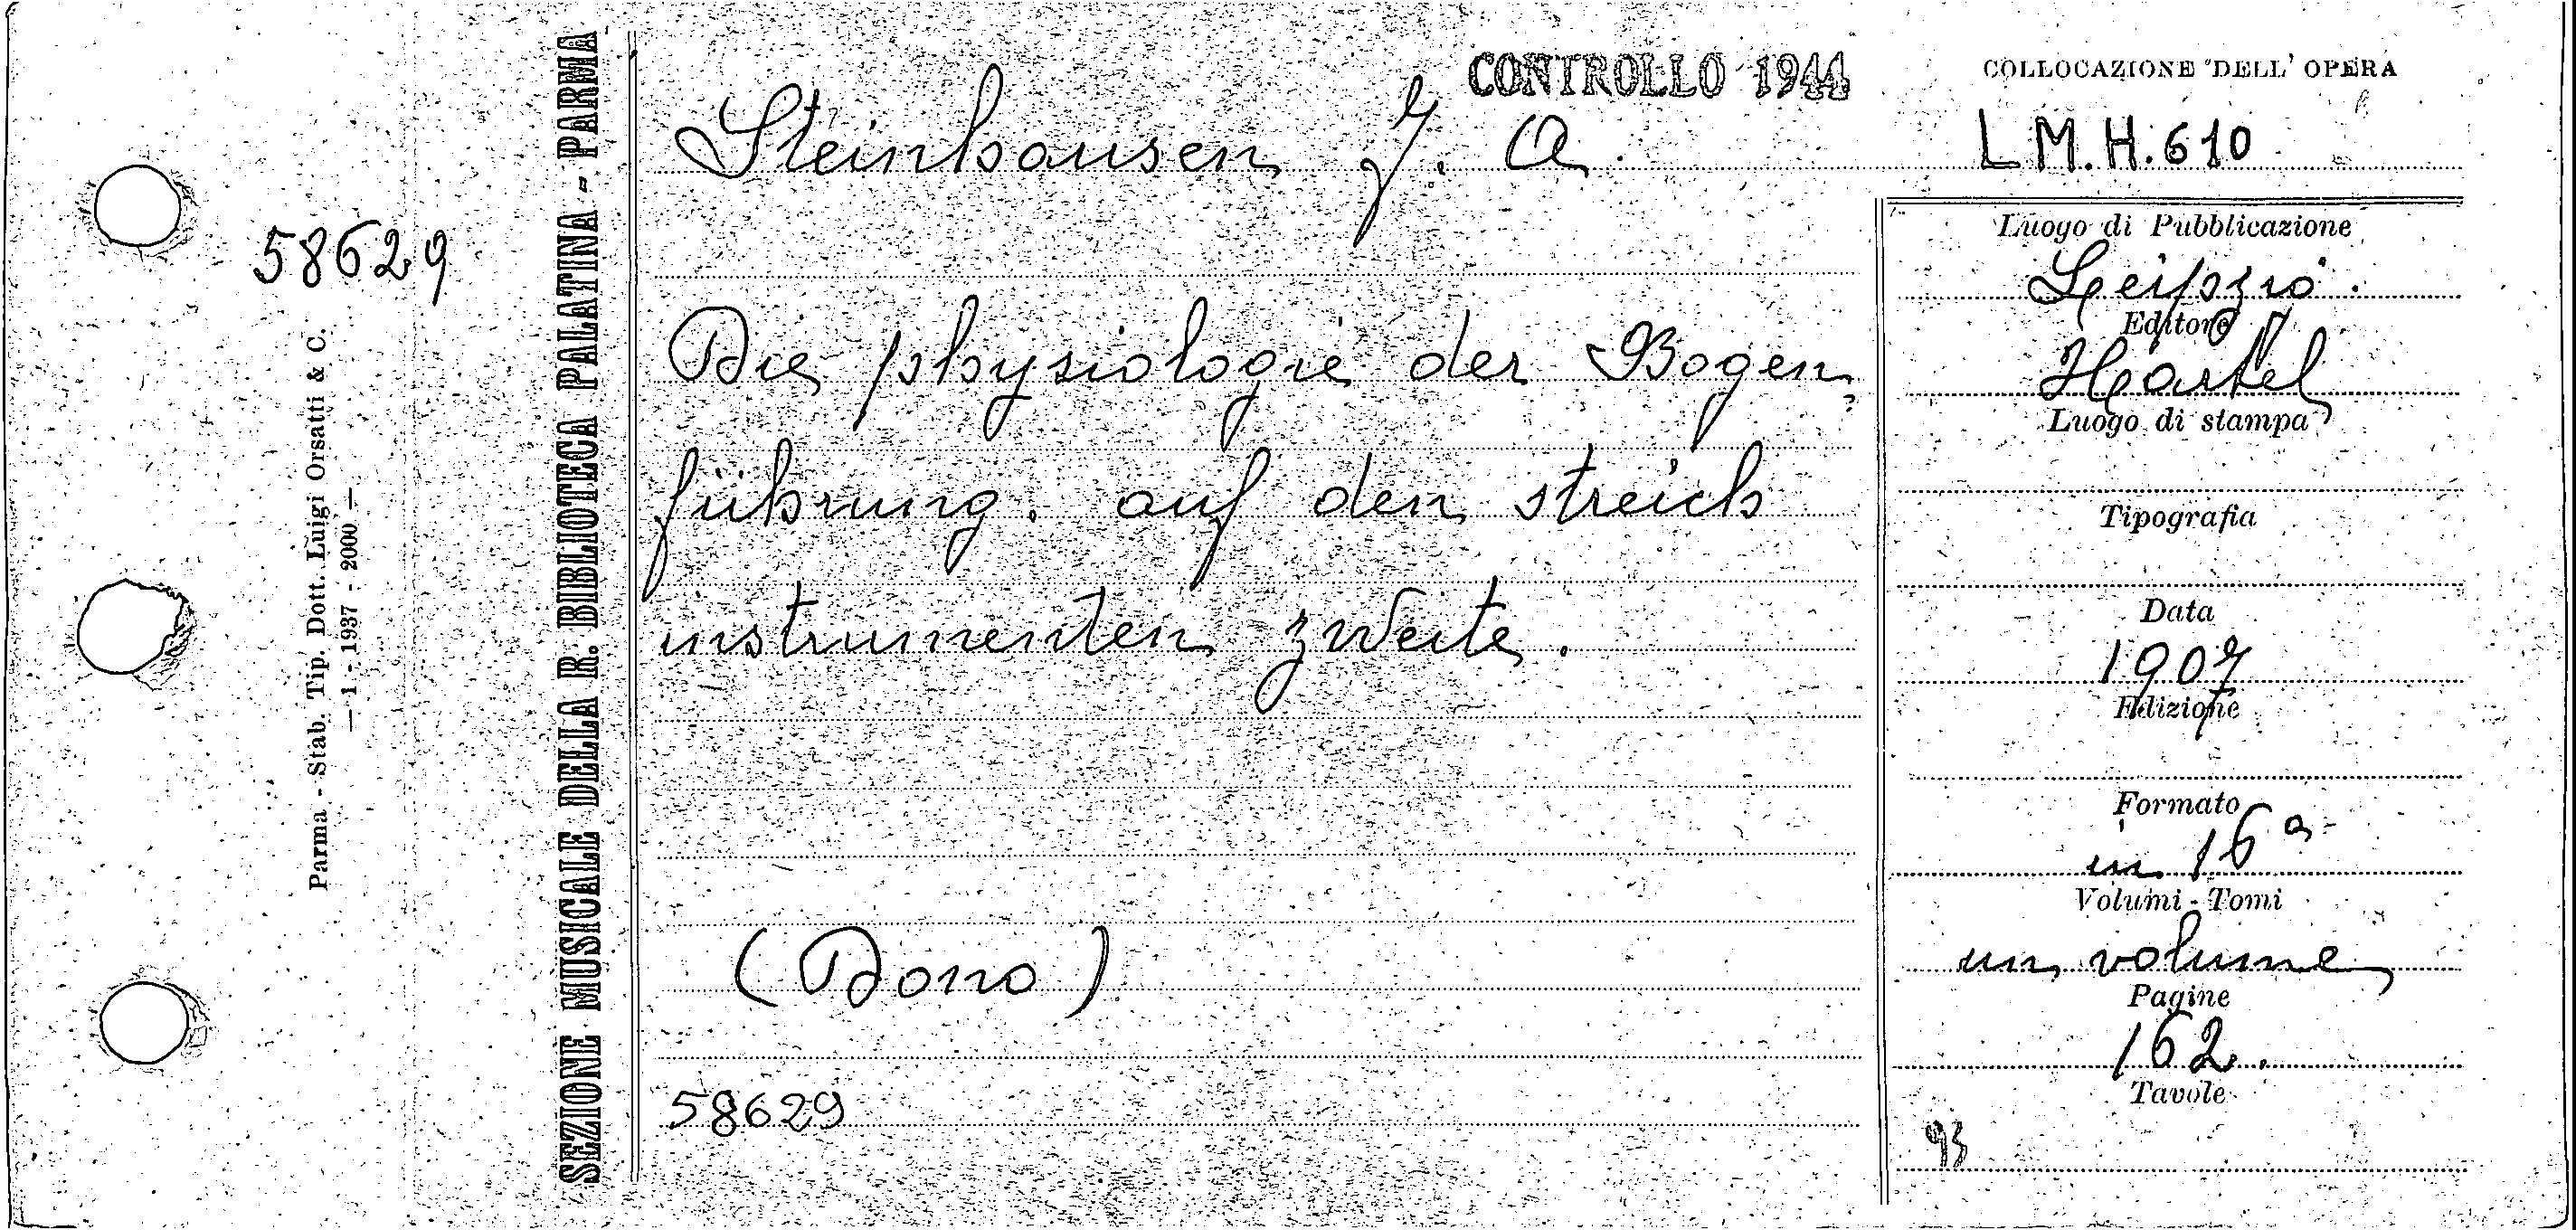 58629
Parma - Stab. Tip. Dott. Luigi Orsatti & C.
— 1 - 1937 - 2000 —
SEZIONE MUSICALE DELLA R. BIBLIOTECA PALATINA - PARMA
CONTROLLO 1944
Steinhausen F. A.
Die physiologie der Bogen
führung. auf den streich
instrumenten zweite.
(Dono)
58629
COLLOCAZIONE DELL' OPERA
L M. H. 610
Luogo di Pubblicazione
Leipzig.
Editore
Hartel
Luogo di stampa
Tipografia
Data
1907
Edizione
Formato
in 16º
Volumi - Tomi
un volume
Pagine
162.
Tavole
93